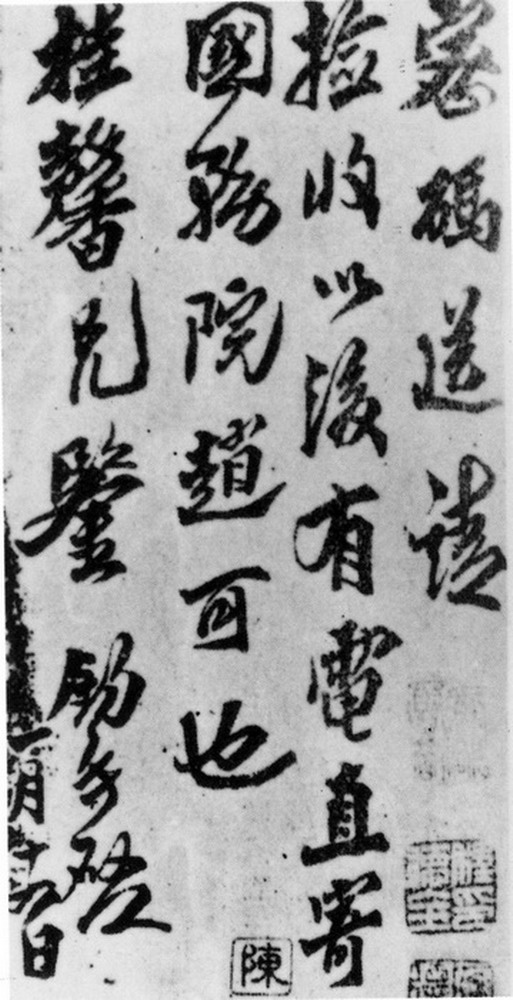 密碼送請
撿收以後有電直寄
國務院趙可也
桂馨兄鑒 鈞手啓
一月十四日
陳